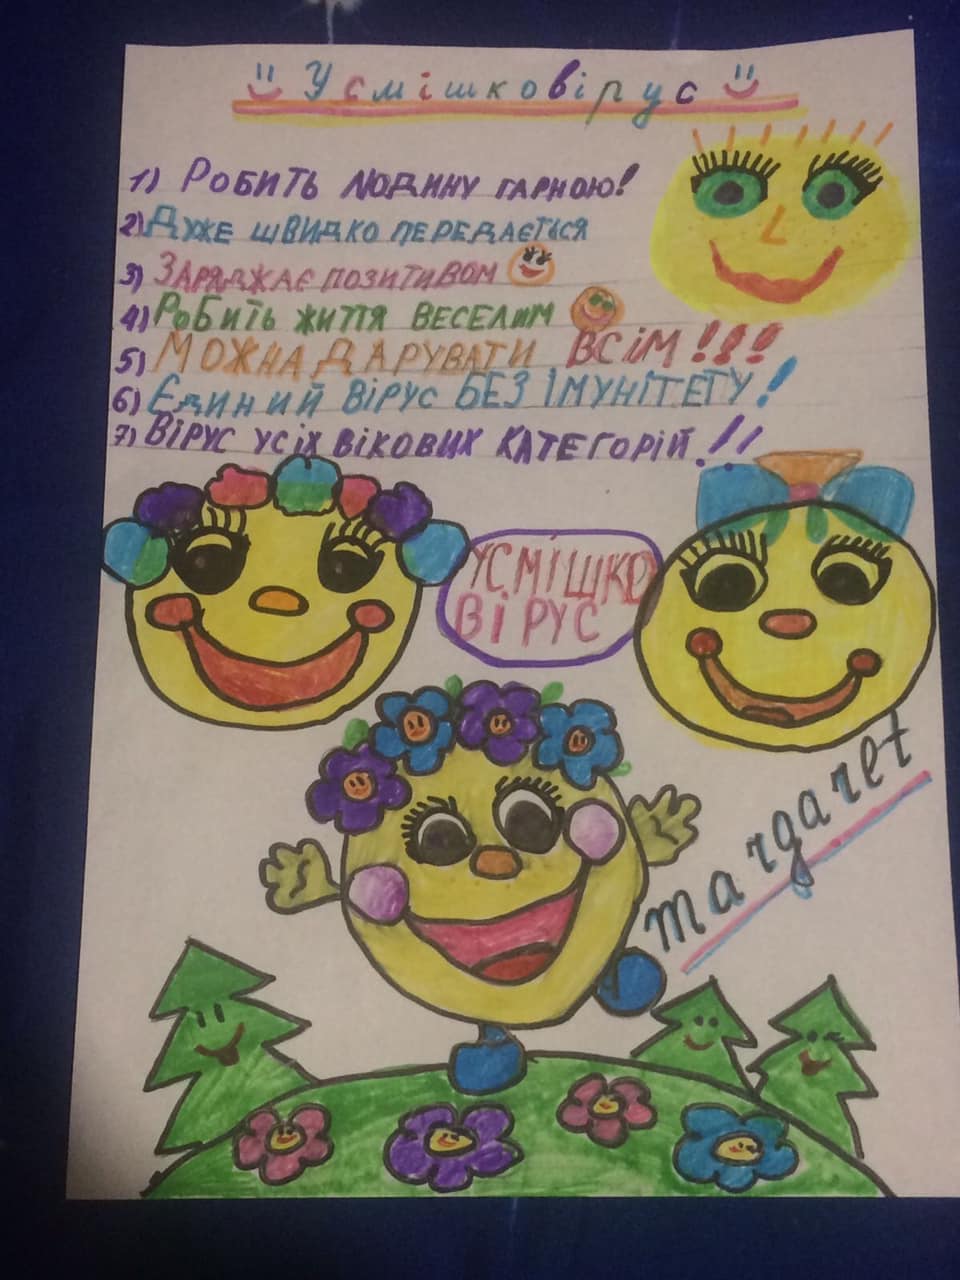 Усмішковірус
1) Робить людину гарною!
2) Дуже швидко передається
3) Заряджає позитивом
4) Робить життя веселим
5) Можна дарувати всім!!!
6) Єдиний вірус без імунітету!
7) Вірус усіх вікових категорій!!
Усмішко
вірус
margaret